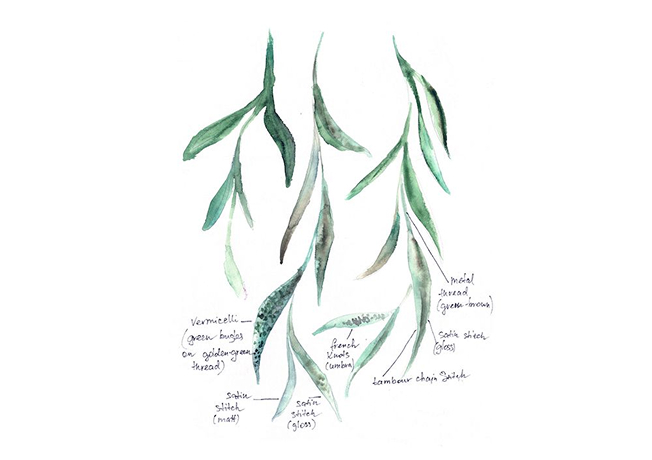 metal
thread
(green-brown)
vermicelli
(green bugles
on golden-green
thread)
french
knots
(umbra)
satin stitch
(gloss)
tambour chain stitch
satin
stitch
(matt)
satin
stitch
(gloss)